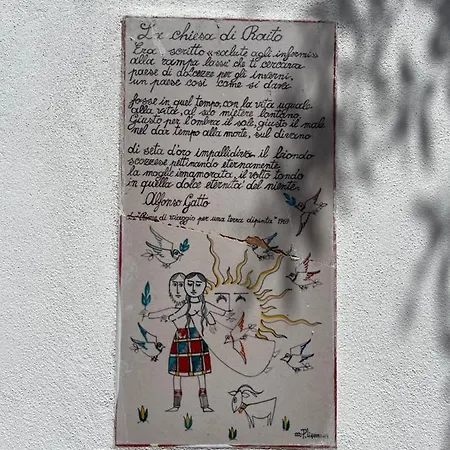 La chiesa di Raito
Era scritto «salute agli infermi»
alla rampa lassù che ti cercava
paese di dolcezze per gli inverni,
un paese così come si dava
fosse in quel tempo, con la vita uguale
alla vita, al suo mietere lontano.
Giusto per l'ombra il sole, giusto il male
nel dar tempo alla morte, sul divano
di seta d'oro impallidiva il biondo
scozzese pettinando eternamente
la moglie innamorata, il volto tondo
in quella dolce eternità del niente.
Alfonso Gatto
di viaggio per una terra dipinta" 1969